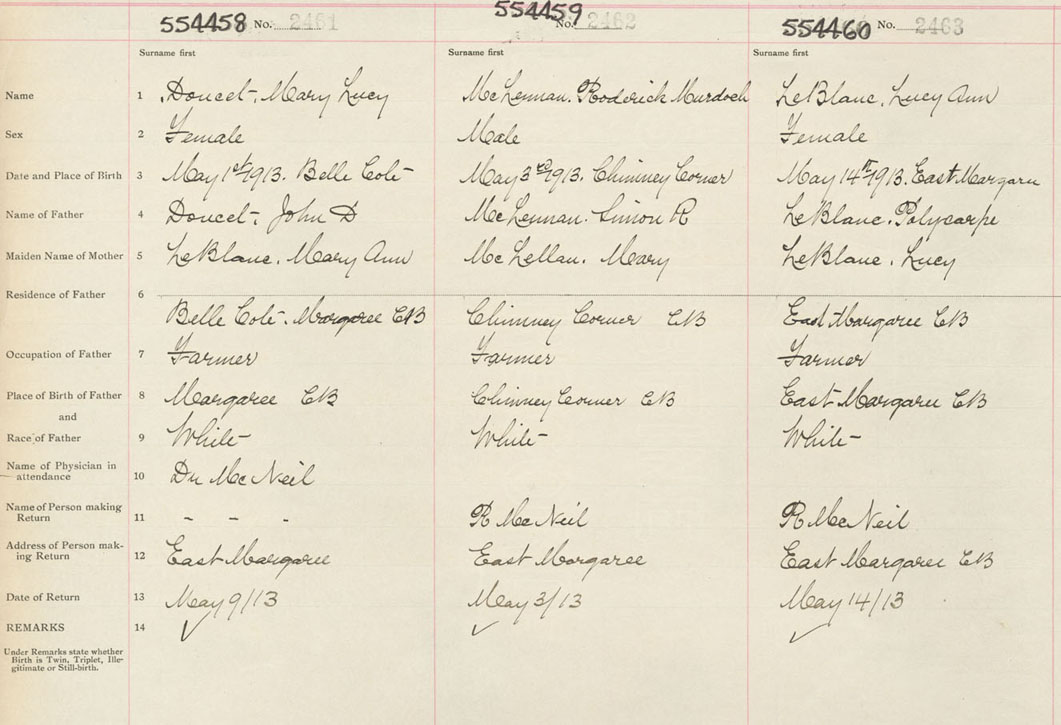 554458 No. 2461 554459 No. 2462 554460 No. 2463
Surname first Surname first Surname first
Name 1 Doucet, Mary Lucy McLennan. Roderick Murdoch LeBlanc, Lucy Ann
Sex 2 Female Male Female
Date and Place of Birth 3 May 1st 1913. Belle Cote May 3rd 1913. Chimney Corner May 14th 1913. East Margaree
Name of Father 4 Doucet, John D McLennan. Simon R LeBlanc. Polycarpe
Maiden Name of Mother 5 LeBlanc, Mary Ann McLellan. Mary LeBlanc, Lucy
Residence of Father 6
Belle Cote. Margaree CB Chimney Corner CB East Margaree CB
Occupation of Father 7 Farmer Farmer Farmer
Place of Birth of Father 8 Margaree CB Chimney Corner CB East Margaree CB
and
Race of Father 9 White White White
Name of Physician in
attendance 10 Dr McNeil
Name of Person making
Return 11 - - - R McNeil R McNeil
Address of Person mak-
ing Return 12 East Margaree East Margaree East Margaree CB
Date of Return 13 May 9/13 May 3/13 May 14/13
REMARKS 14 ✓ ✓ ✓
Under Remarks state whether
Birth is Twin, Triplet, Ille-
gitimate or Still-birth.